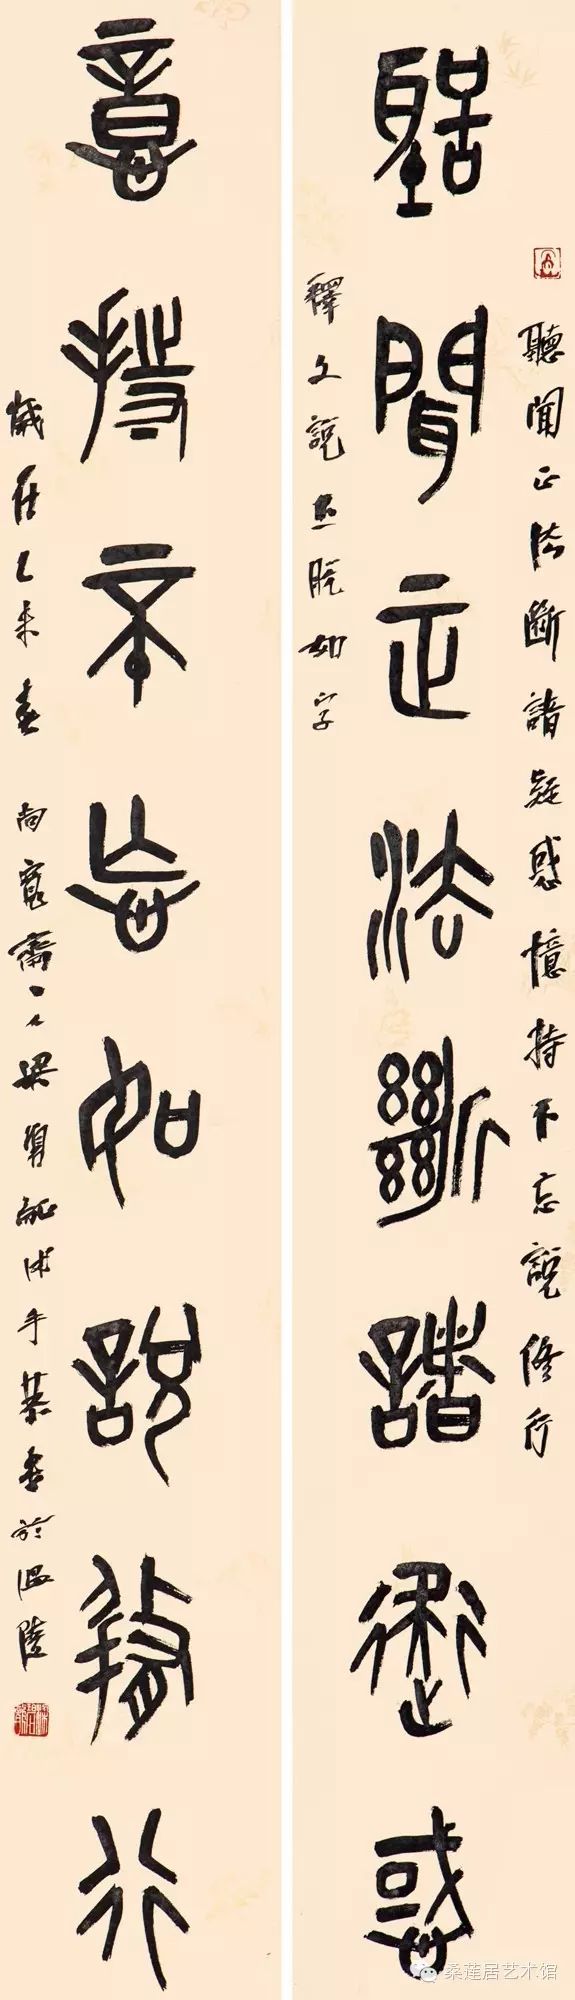 聽聞正法斷諸疑惑憶持不忘說修行
聽聞正法斷諸疑惑
釋文說脫如字
意持不忘如說修行
歲在乙未春 尚寬齋人梁沐手恭書於溫陵
桑莲居艺术馆